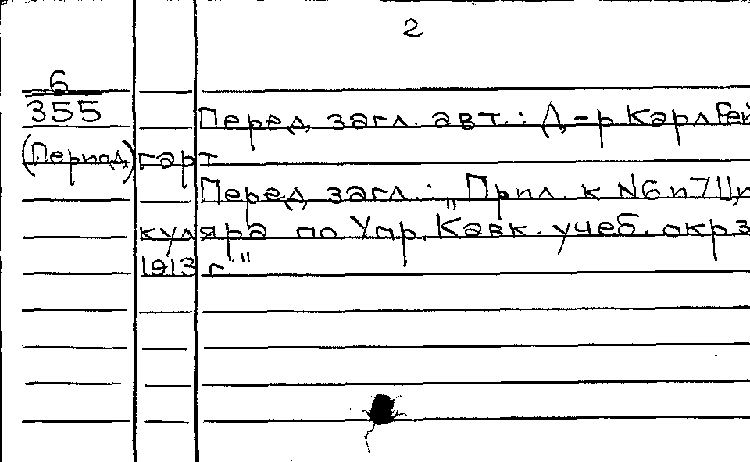 2
6
355
(Период)
Перед загл. авт.: Д-р Карл Рей
гарт
Перед загл.: "Прил. к № 6 и 7 Цир
куляра по Упр. Кавк. учеб. окр. з
1913 г"